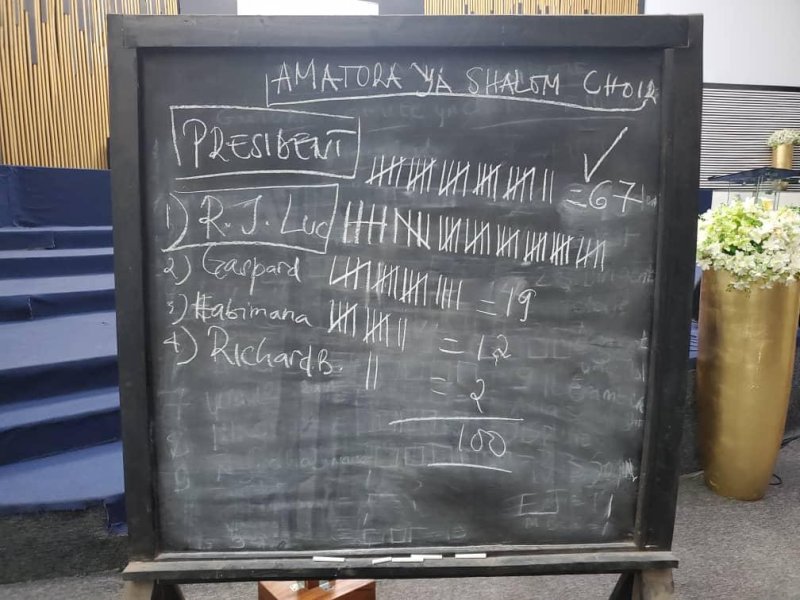 AMATORA YA SHALOM CHOIR
PRESIDENT
= 67
1) R. J. Luc
2) Gaspard = 19
3) Habimana = 12
4) Richard B. = 2
100